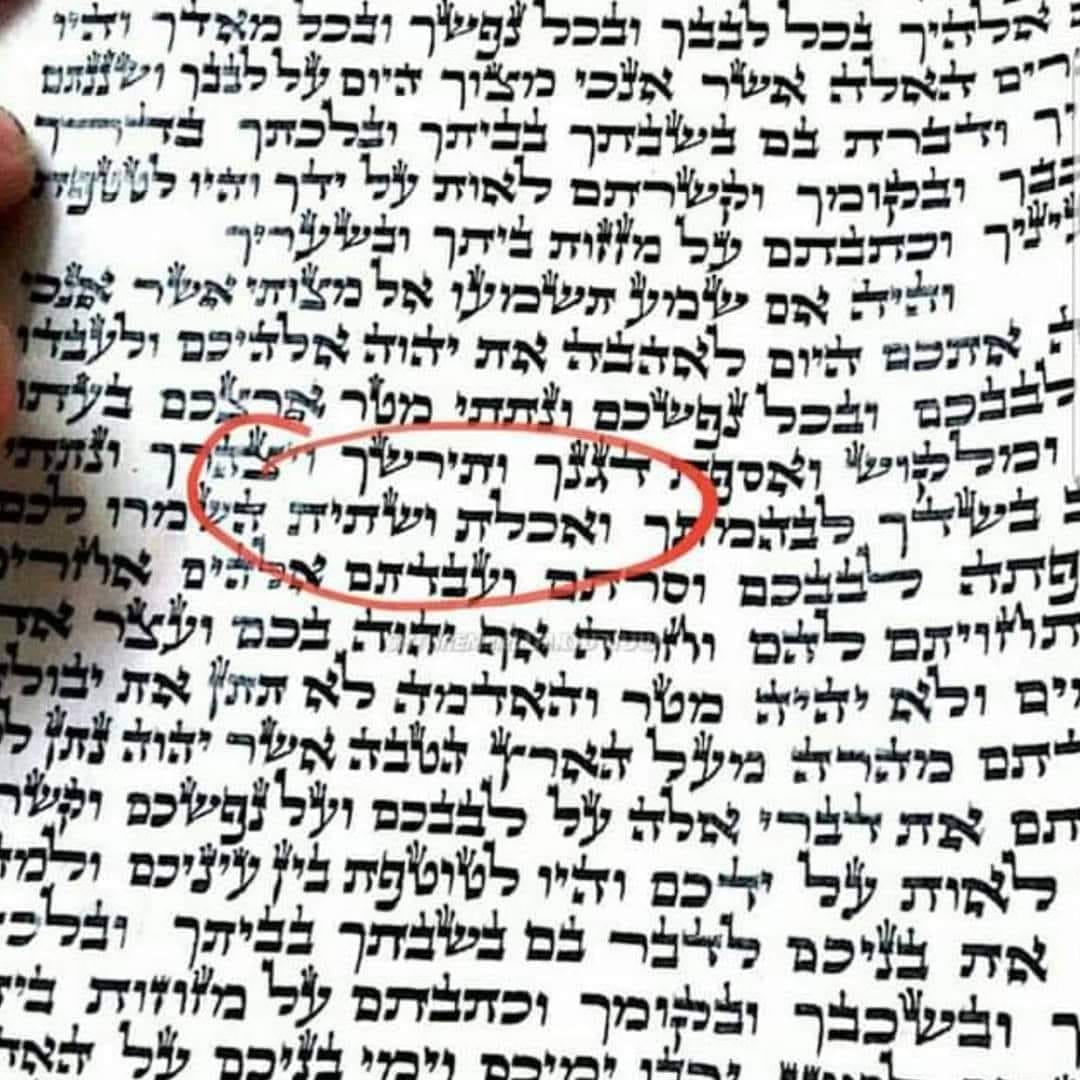 אלהיך בכל לבבך ובכל נפשך ובכל מאדך והיו
רים האלה אשר אנכי מצוך היום על לבבך ושננתם
ך ודברת בם בשבתך בביתך ובלכתך בדרך
ובקומך וקשרתם לאות על ידך והיו לטטפת
יניך וכתבתם על מזוזות ביתך ובשעריך
והיה אם שמע תשמעו אל מצותי אשר אנכי
ה אתכם היום לאהבה את יהוה אלהיכם ולעבדו
לבבכם ובכל נפשכם ונתתי מטר ארצכם בעתו
ומלקוש ואספת דגנך ותירשך ויצהרך ונתתי
בשדך לבהמתך ואכלת ושתית השמרו לכם
פתה לבבכם וסרתם ועבדתם אלהים אחרים
תחויתם להם וחרה אף יהוה בכם ועצר את
ים ולא יהיה מטר והאדמה לא תתן את יבול
דתם מהרה מעל הארץ הטבה אשר יהוה נתן ל
תם את דברי אלה על לבבכם ועל נפשכם וקשר
לאות על ידכם והיו לטוטפת בין עיניכם ולמד
את בניכם לדבר בם בשבתך בביתך ובלכ
ך ובשכבך ובקומך וכתבתם על מזוזות בית
ירבו ימיכם וימי בניכם על האד